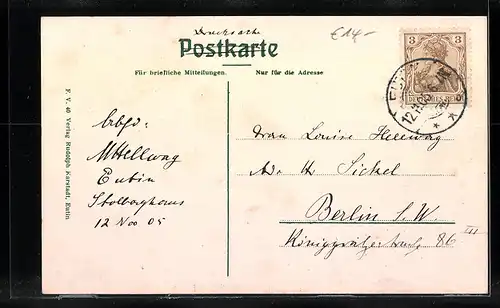 Drucksache
Postkarte
€14,-
Für briefliche Mitteilungen.
Nur für die Adresse
3
3
DEUTSCHES REICH
EUTIN
12.11.05
F. V. 40 Verlag Rudolph Karstadt, Eutin
Absdr.
Eutin
Stolberghaus
12 Nov 05
Frau Louise Hellwag
Adr.
Berlin S.W.
Königgrätzerstraße 86 III